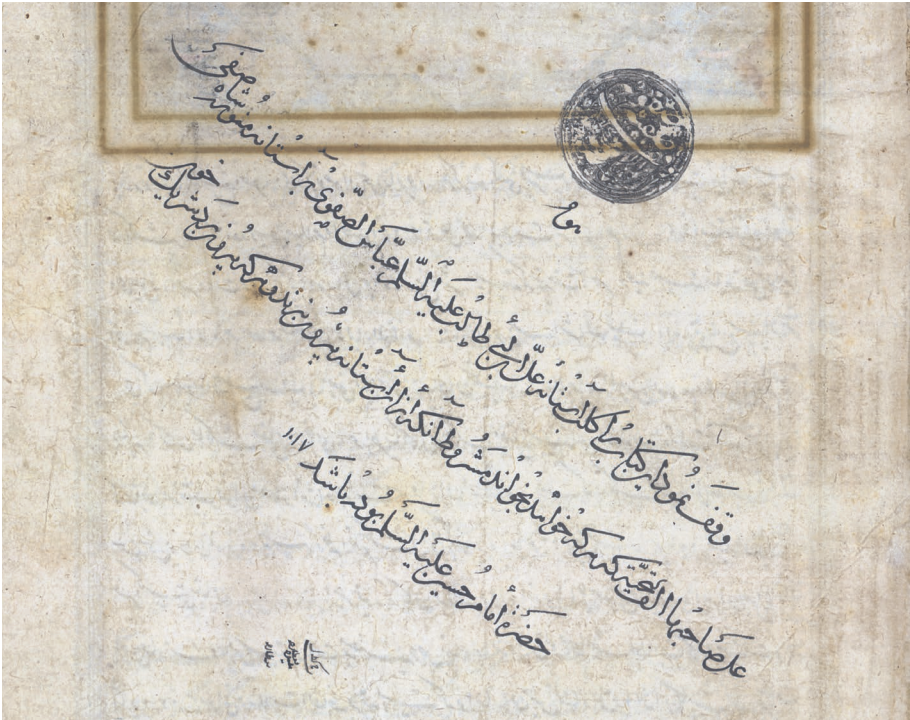 هو
وقف نمود این کتاب را کلب آستانه علی بن ابی طالب علیه السلم عباس الصفوی بر آستانه منوره شاه صفی
علی صاحبها التحیة که هرکه خواهد بخواند مشروط آنکه از آن آستانه بیرون نبرند و هرکه بیرون برد شریک خون
حضرة امام حسین علیه السلم بوده باشد ۱۰۱۷